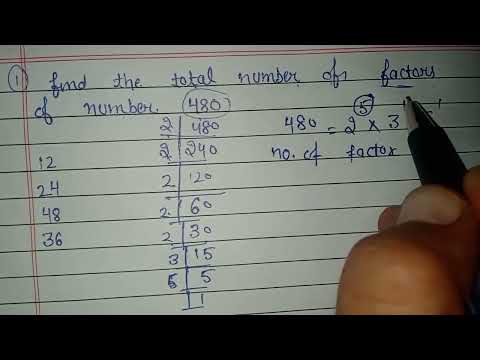 ① find the total number of factors
of number. 480
2 | 480
2 | 240
2 | 120
2 | 60
2 | 30
3 | 15
5 | 5
1
12
24
48
36
480 = 2⁵ × 3
no. of factor